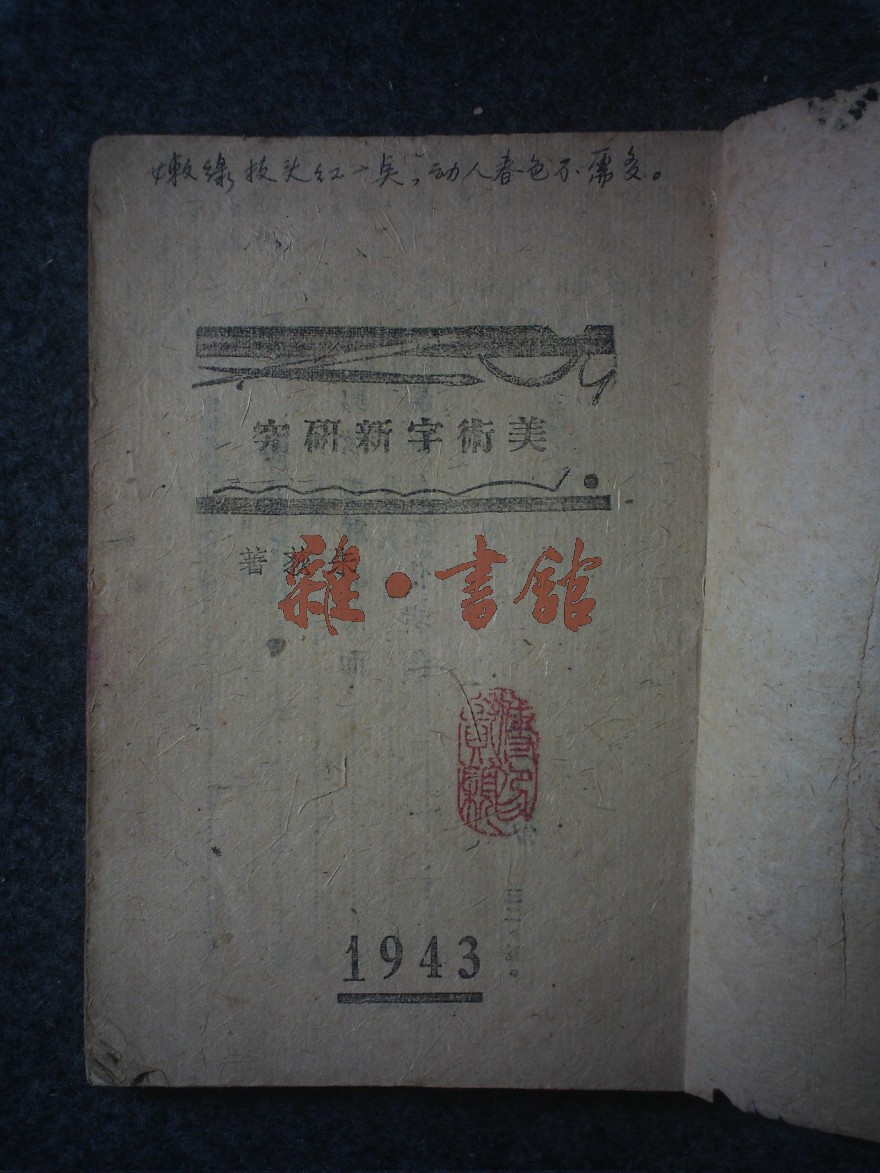 嫩綠枝头红一点,动人春色不需多。
美術字新研究
朱荻著
雜·書館
1943